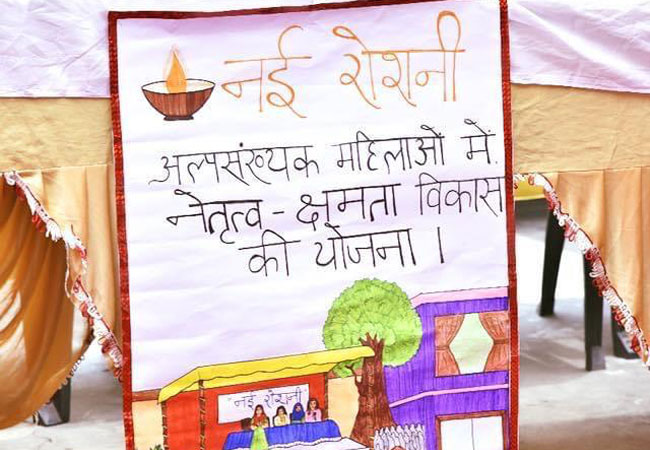 नई रोशनी
अल्पसंख्यक महिलाओं में
नेतृत्व - क्षमता विकास
की योजना ।
"नई रोशनी"